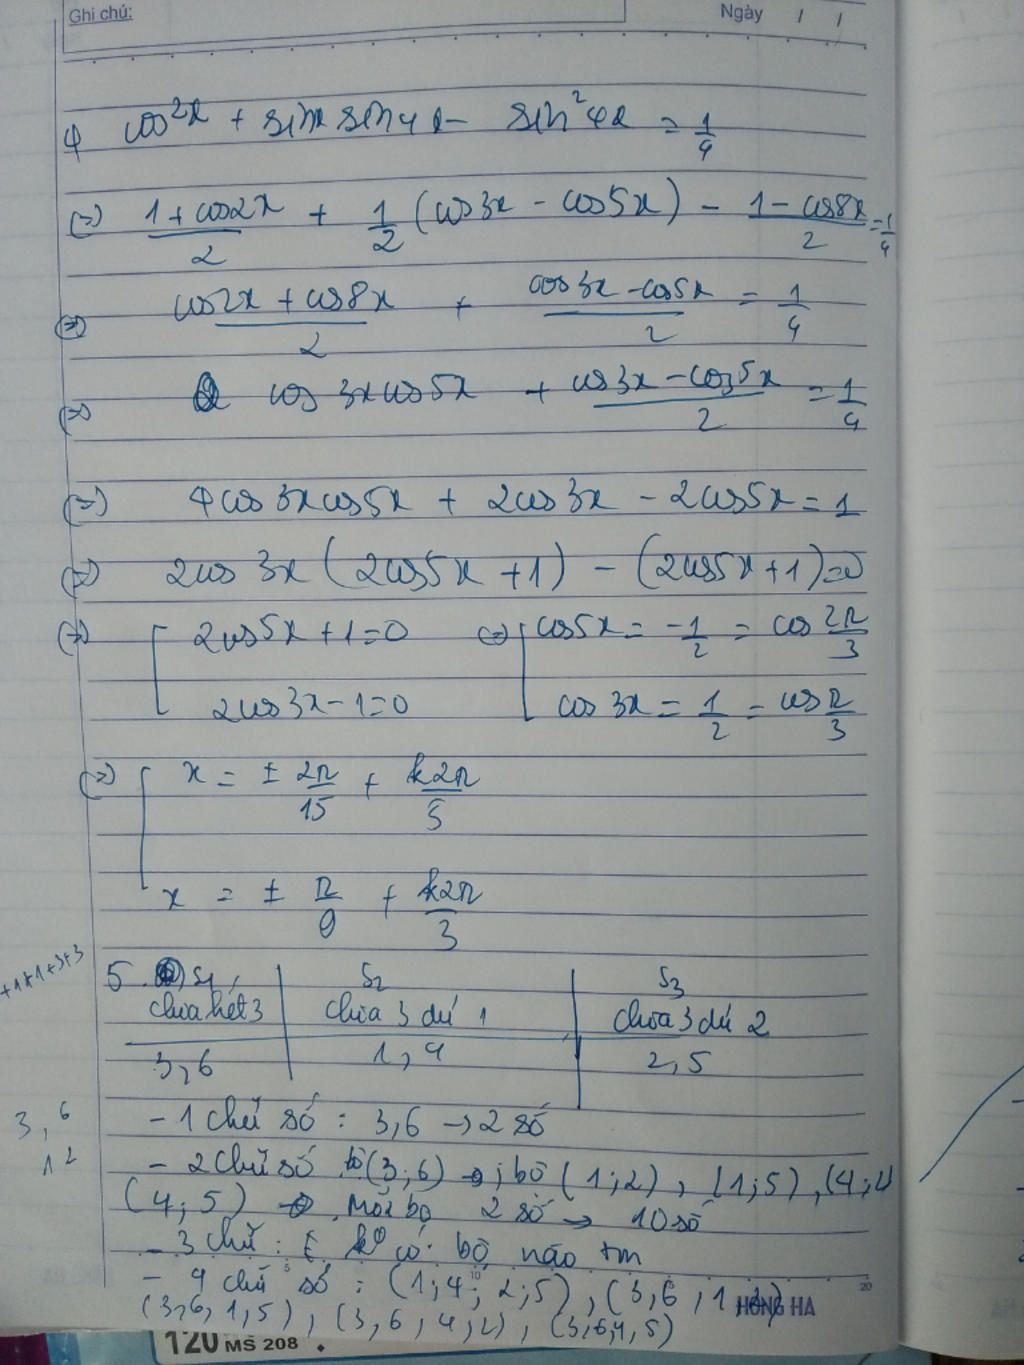 Ghi chú: Ngày / /
4 cos²x + sinx sin4x - sin²4x = 1/4
(=) (1+cos2x)/2 + 1/2 (cos3x - cos5x) - (1-cos8x)/2 = 1/4
(=) (cos2x + cos8x)/2 + (cos3x - cos5x)/2 = 1/4
(=) cos 3x cos5x + (cos3x - cos5x)/2 = 1/4
(=) 4cos 3x cos5x + 2cos 3x - 2cos5x = 1
(=) 2cos 3x (2cos5x +1) - (2cos5x +1)=0
(=) [ 2cos5x +1=0 (=) [ cos5x = -1/2 = cos 2π/3
2cos3x-1=0 cos 3x = 1/2 = cos π/3
(=) [ x = ± 2π/15 + k2π/5
x = ± π/9 + k2π/3
+1+1+3+3
5. S1, S2 S3
chia hết 3 chia 3 dư 1 chia 3 dư 2
3,6 1,4 2,5
- 1 chữ số : 3,6 -> 2 số
3, 6
- 2 chữ số bộ (3;6) ; bộ (1;2), (1;5), (4;2)
1 2
(4;5) Mỗi bộ 2 số -> 10 số
- 3 chữ : ko có bộ nào tm
- 4 chữ số : (1;4; 2;5), (3,6, 1,2)
(3,6, 1,5), (3,6,4,2), (3,6,4,5)
5 10 20
HONG HA
120 MS 208